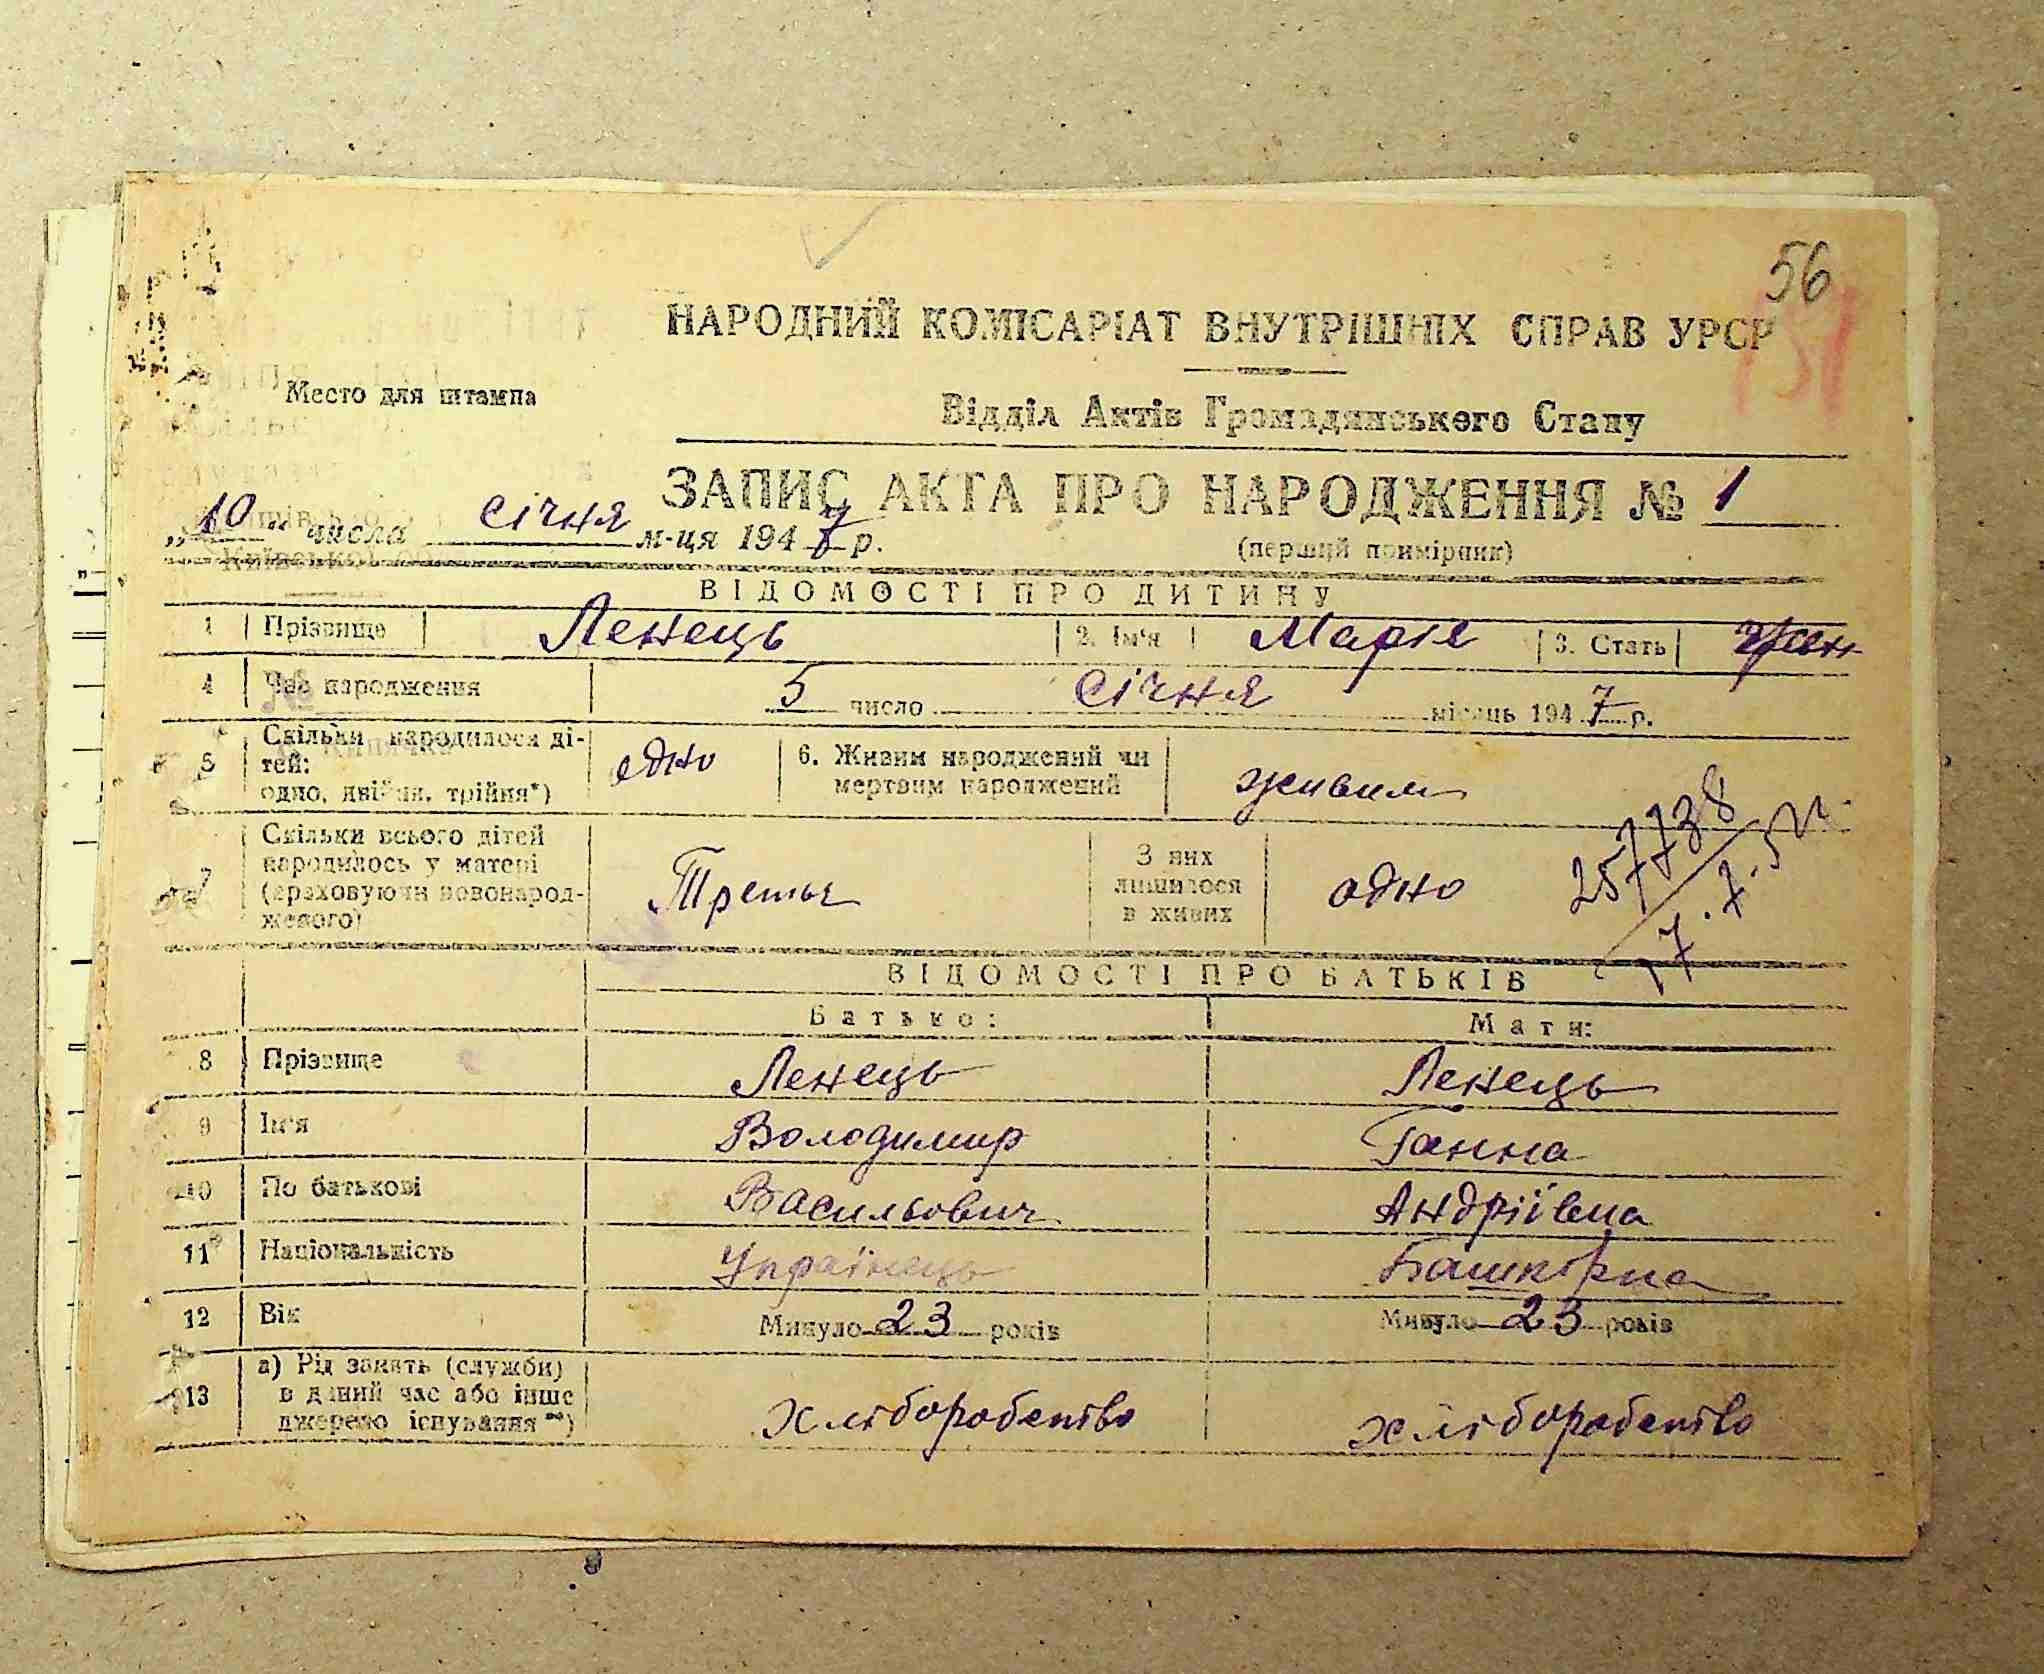 56
151
НАРОДНИЙ КОМІСАРІАТ ВНУТРІШНІХ СПРАВ УРСР
Место для штампа
Відділ Актів Громадянського Стану
ЗАПИС АКТА ПРО НАРОДЖЕННЯ № 1
„10" числа січня м-ця 1947 р.
(перший примірник)
Київської
ВІДОМОСТІ ПРО ДИТИНУ
1 Прізвище Ленець 2. Ім'я Марія 3. Стать жен
4 Час народження 5 число січня місяць 1947 р.
5 Скільки народилося ді-
тей:
одно, двійня, трійня*) одно 6. Живим народжений чи
мертвим народжений живим
7 Скільки всього дітей
народилось у матері
(враховуючи новонарод-
женого) Третья З них
лишилося
в живих одно
257738
17.7.52
ВІДОМОСТІ ПРО БАТЬКІВ
Батько: Мати:
8 Прізвище Ленець Ленець
9 Ім'я Володимир Ганна
10 По батькові Васильович Андріївна
11 Національність Українець Башкірка
12 Вік Минуло 23 років Минуло 23 років
13 а) Рід занять (служби)
в даний час або інше
джерело існування **) хліборобство хліборобство